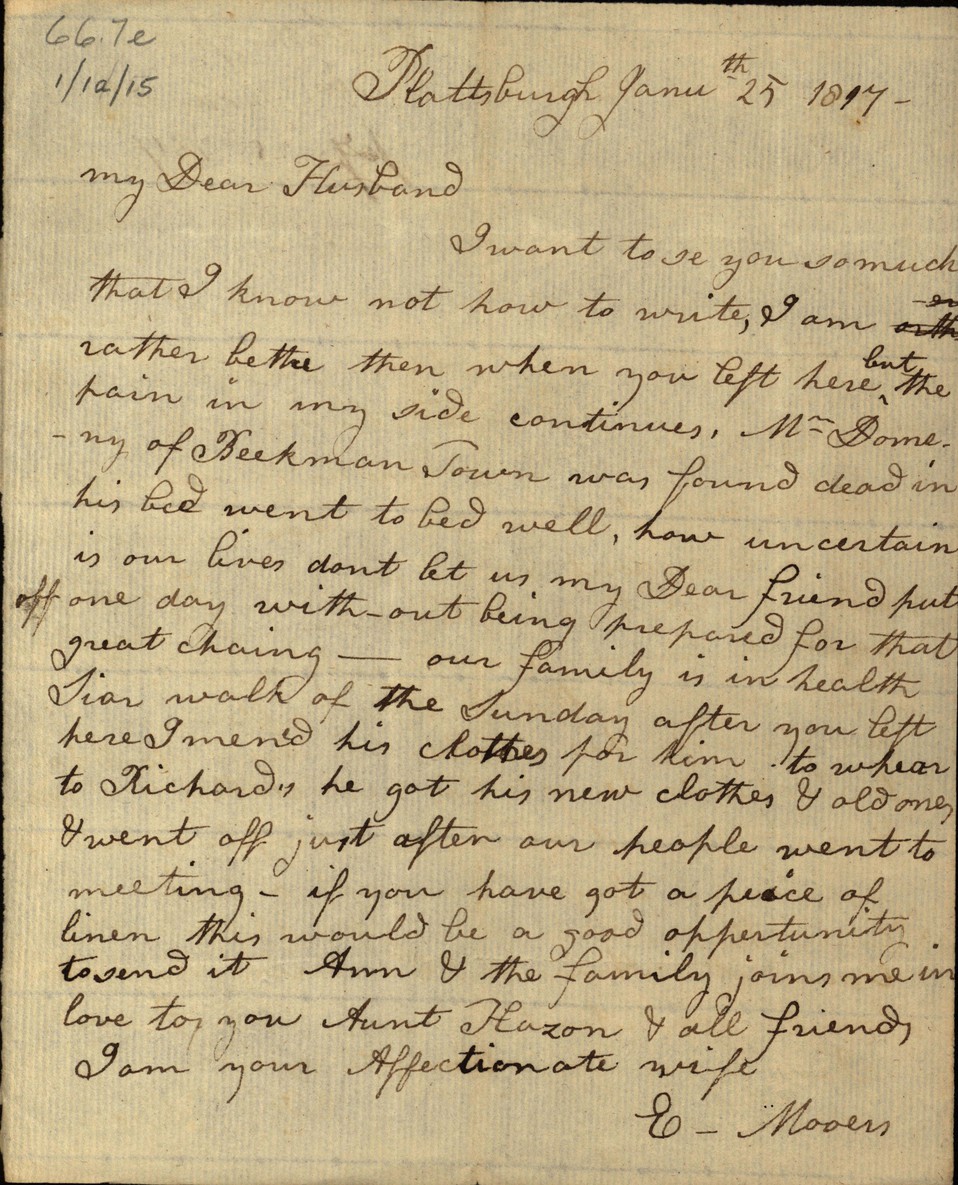 66.7e
1/12/15
Plattsburgh Janu th 25 1817 -
my Dear Husband
I want to se you somuch
that I know not how to write, I am
rather bethe then when you left here but the
pain in my side continues, Mr Dome-
-ny of Beekman Town was found dead in
his bed went to bed well, how uncertain
is our lives dont let us my Dear friend put
off one day with-out being prepared for that
great chaing — our family is in health
Siar walk of the Sunday after you left
here I men'd his clothes for him to whear
to Richard's he got his new clothes & old ones
& went off just after our people went to
meeting - if you have got a peice of
linen this would be a good oppertunity
to send it Ann & the family joins me in
love to you Aunt Hazon & all friends
I am your Affectionate wife
E - Mooers